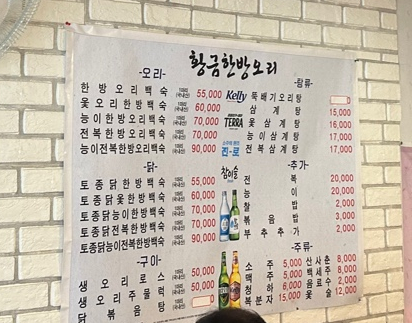 황금한방오리
-오리-
한방오리백숙 55,000
옻오리한방백숙 60,000
능이한방오리백숙 70,000
전복한방오리백숙 70,000
능이전복한방오리백숙 90,000
-닭-
토종닭한방백숙 55,000
토종닭옻한방백숙 60,000
토종닭능이한방백숙 70,000
토종닭전복한방백숙 70,000
토종닭능이전복한방백숙 90,000
-구이-
생오리로스 50,000
생오리주물럭 50,000
닭볶음탕 0
Kelly
TERRA
진로
참이슬
-탕류-
뚝배기오리탕 0
삼계탕 15,000
옻삼계탕 16,000
능이삼계탕 17,000
전복삼계탕 17,000
-추가-
전복 20,000
능이 20,000
찰밥 2,000
볶음밥 3,000
부추추가 2,000
-주류-
소주 5,000 산사춘 8,000
맥주 5,000 백세주 8,000
청하 6,000 음료수 2,000
복분자 15,000 옻술 12,000